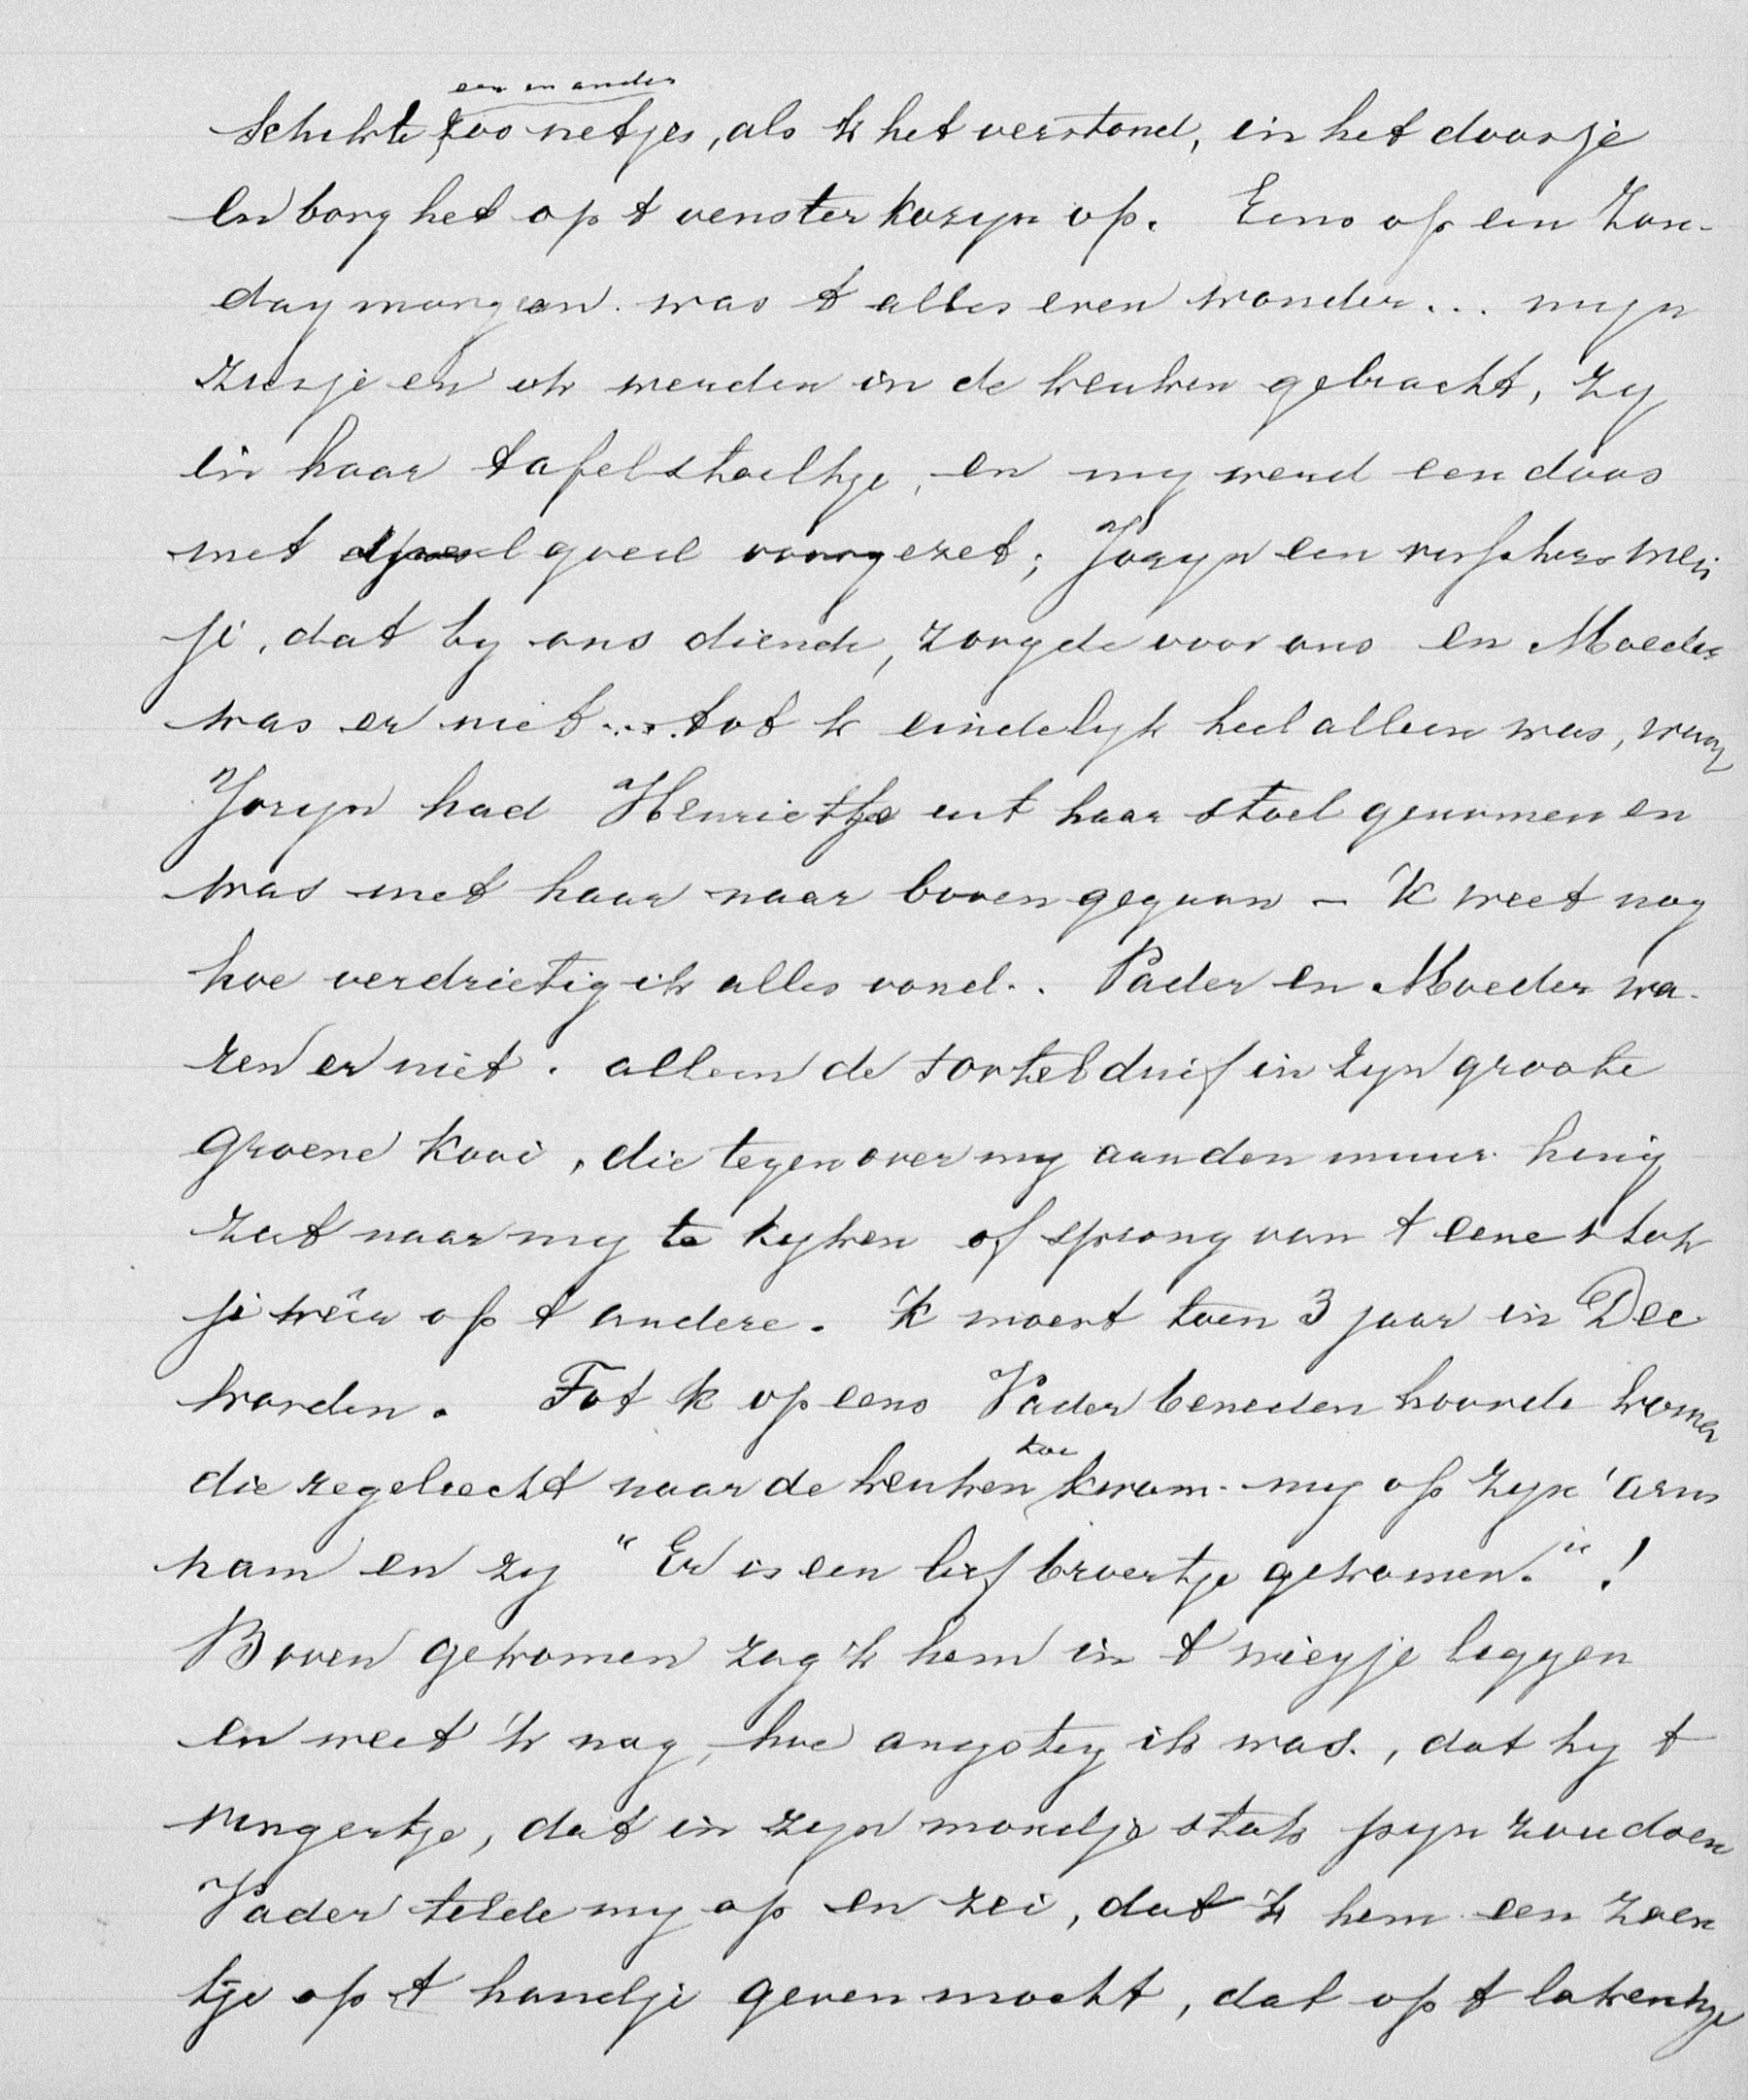 een en ander
schikte zoo netjes, als 'k het verstond, in het doosje
en borg het op 't vensterkozyn op. Eens op een Zon-
dagmorgen was 't alles even wonder... myn
zusje en ik werden in de keuken gebracht, zy
in haar tafelstoeltje, en my werd een doos
met speelgoed voorgezet; Jozyn een visschersmeis
je, dat by ons diende, zorgde voor ons en Moeder
was er niet.... tot 'k eindelyk heel alleen was, want
Jozyn had Henrietje uit haar stoel genomen en
was met haar naar boven gegaan - 'k weet nog
hoe verdrietig ik alles vond.. Vader en Moeder wa-
ren er niet. alleen de tortelduif in zyn groote
groene kooi, die tegenover my aan den muur hing
zat naar my te kyken of sprong van 't eene stok
je wêer op 't andere. 'k moest toen 3 jaar in Dec
worden. Tot 'k opeens Vader beneden hoorde komen
toe
die regelrecht naar de keuken kwam. my op zyn arm
nam en zy "Er is een lief broertje gekomen."!
Boven gekomen zag 'k hem in 't wiegje liggen
en weet 'k nog, hoe angstig ik was., dat hy 't
vingertje, dat in zyn mondje stak pyn zou doen
Vader telde my op en zei, dat 'k hem een zoen
tje op 't handje geven mocht, dat op 't lakentje